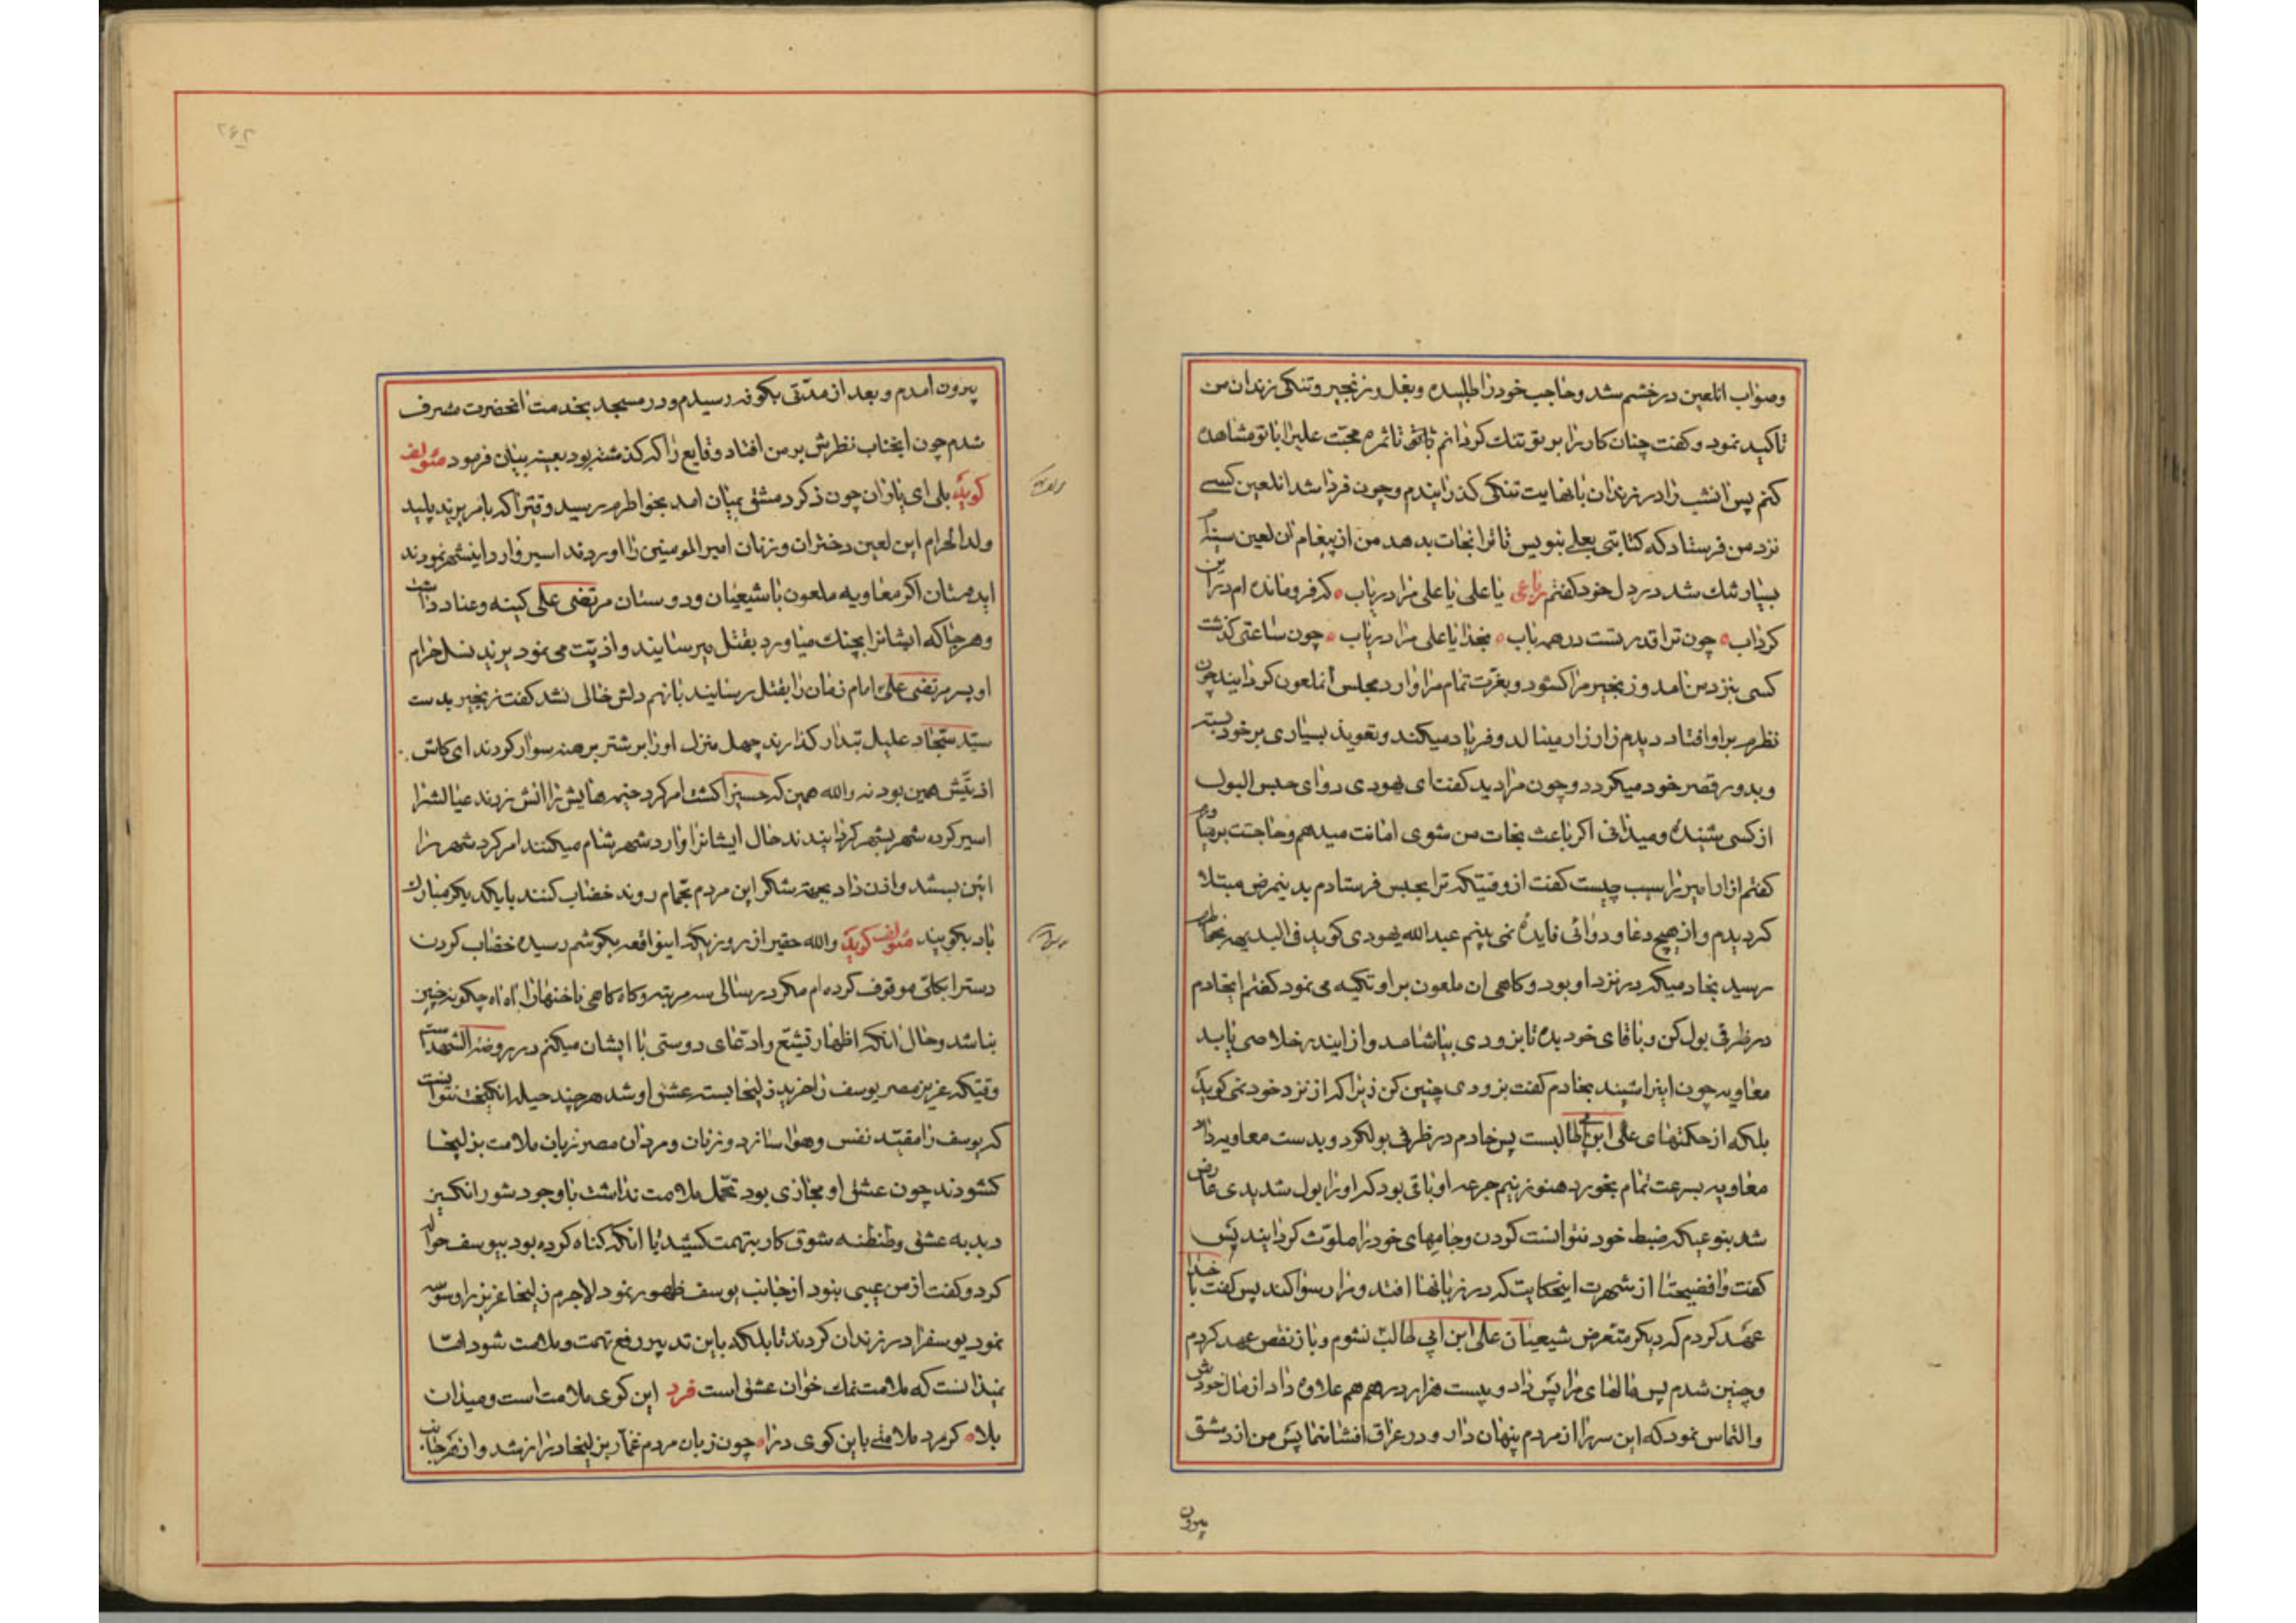 وصواب انلعین درخشم شد وحاجب خود را طلبیده وبغل وزنجیر وتنکی زندان من
تاکید نمود و کفت چنان کار را بر تو تنک کردانم تا ثمره محبت علیرا با تو مشاهده
کنم پس انشب را در زندان بانهایت تنکی کذرانیدم وچون فردا شد انلعین کسی
نزد من فرستاد که کتابتی بعلی بنویس تا ترا نجات بدهد من از پیغام ان لعین
بسیار تنک شد در دل خود کفتم رباعی یا علی یا علی مرا دریاب که فرو مانده ام در این
کرداب چون ترا قدرتست در همه باب بخدا یا علی مرا دریاب چون ساعتی کذشت
کسی بنزد من امد وزنجیر مرا کشود وبعزت تمام مرا وارد مجلس انملعون کردانید چون
نظرم بر او افتاد دیدم زار زار مینالد وفریاد میکند وتعویذ بسیاری بر خود بسته
وبدور قصر خود میکردد وچون مرا دید کفت ای یهودی دوای حبس البول
از کسی شنیدهٔ ومیدانی اکر باعث نجات من شوی امانت میدهم وحاجتت برمیاورم
کفتم ازار امیر را سبب چیست کفت از وقتیکه ترا بحبس فرستادم بدینمرض مبتلا
کردیدم واز هیچ دعا ودوائی فایدهٔ نمی بینم عبدالله یهودی کوید فی البدیهه بخاطرم
رسید بخادمیکه در نزد او بود وکاهی ان ملعون بر او تکیه می نمود کفتم ایخادم
در ظرفی بول کن وباقای خود بده تا بزودی بیاشامد واز ایندرد خلاصی یابد
معاویه چون اینرا شنید بخادم کفت بزودی چنین کن زیرا که از نزد خود نمی کوید
بلکه از حکمتهای علی ابن ابی طالبست پس خادم در ظرفی بولکرد وبدست معاویه داد
معاویه بسرعت تمام بخورد هنوز نیم جرعه او باقی بود که او را بول شدیدی عارض
شد بنوعیکه ضبط خود نتوانست کردن وجامهای خود را ملوث کردانید پس
کفت وافضیحتا از شهرت اینحکایت که در زبانها افتد ومرا رسوا کند پس کفت با خدا
عهد کردم که دیکر متعرض شیعیان علی ابن ابی طالب نشوم وباز نقض عهد کردم
وچنین شدم پس مالهای مرا پس داد وبیست هزار درهم هم علاوه داد از مال خودش
والتماس نمود که این سر را از مردم پنهان دار ودر عراق افشا نما پس من از دمشق
بیرون
۲۶۲
بیرون امدم و بعد از مدتی بکوفه رسیدم ودر مسجد بخدمت انحضرت مشرف
شدم چون ایجناب نظرش بر من افتاد وقایع را که کذشته بود بعینه بیان فرمود مؤلف
کوید بلی ای یاران چون ذکر دمشق بمیان امد بخواطرم رسید وقتیرا که بامر یزید پلید
ولد الحرام این لعین دختران وزنان امیرالمومنین را اوردند اسیر وارد اینشهر نمودند
ایدوستان اکر معاویه ملعون با شیعیان ودوستان مرتضی علی کینه وعناد داشت
وهر جا که ایشانرا بچنک میاورد بقتل میرسانید واذیت می نمود یزید نسل حرام
او پسر مرتضی علی امام زمان را بقتل رسانید بازهم دلش خالی نشد کفت زنجیر بدست
سید سجاد علیل تبدار کذارند چهل منزل او را بر شتر برهنه سوار کردند ای کاش
اذیتش همین بود نه والله همین که حسین را کشت امر کرد خیمه هایش را اتش زدند عیالشرا
اسیر کرده شهر بشهر کردانیدند حال ایشانرا وارد شهر شام میکنند امر کرد شهر را
ائین بستند واذن داد بجهة شکر این مردم بحمام روند خضاب کنند بایکدیکر مبارک
باد بکویند مؤلف کوید والله حقیر از روزیکه اینواقعه بکوشم رسیده خضاب کردن
دسترا بکلی موقوف کرده ام مکر در سالی سه مرتبه وکاه کاهی ناخنها را اه اه چکونه چنین
نباشد وحال انکه اظهار تشیع وادعای دوستی با ایشان میکنم در روضة الشهدا ست
وقتیکه عزیز مصر یوسف را خرید زلیخا بسته عشق او شد هر چند حیله انکیخت نتوانست
که یوسف را مقید نفس وهوا سازد وزنان ومردان مصر زبان ملامت بزلیخا
کشودند چون عشق او مجازی بود تحمل ملامت نداشت باوجود شور انکیز
دبدبه عشق وطنطنه شوق کار بتهمت کشید با انکه کناه کرده بود بیوسف حواله
کرد وکفت از من عیبی نبود از جانب یوسف ظهور نمود لاجرم زلیخا عزیز را وسوسه
نمود یوسفرا در زندان کردند تا بلکه باین تدبیر رفع تهمت وملامت شود اما
نمیدانست که ملامت نمک خوان عشق است فرد این کوی ملامت است ومیدان
بلا کو مرد ملامتی باین کوی درا چون زبان مردم غماز بزلیخا دراز شد واز هر جانب